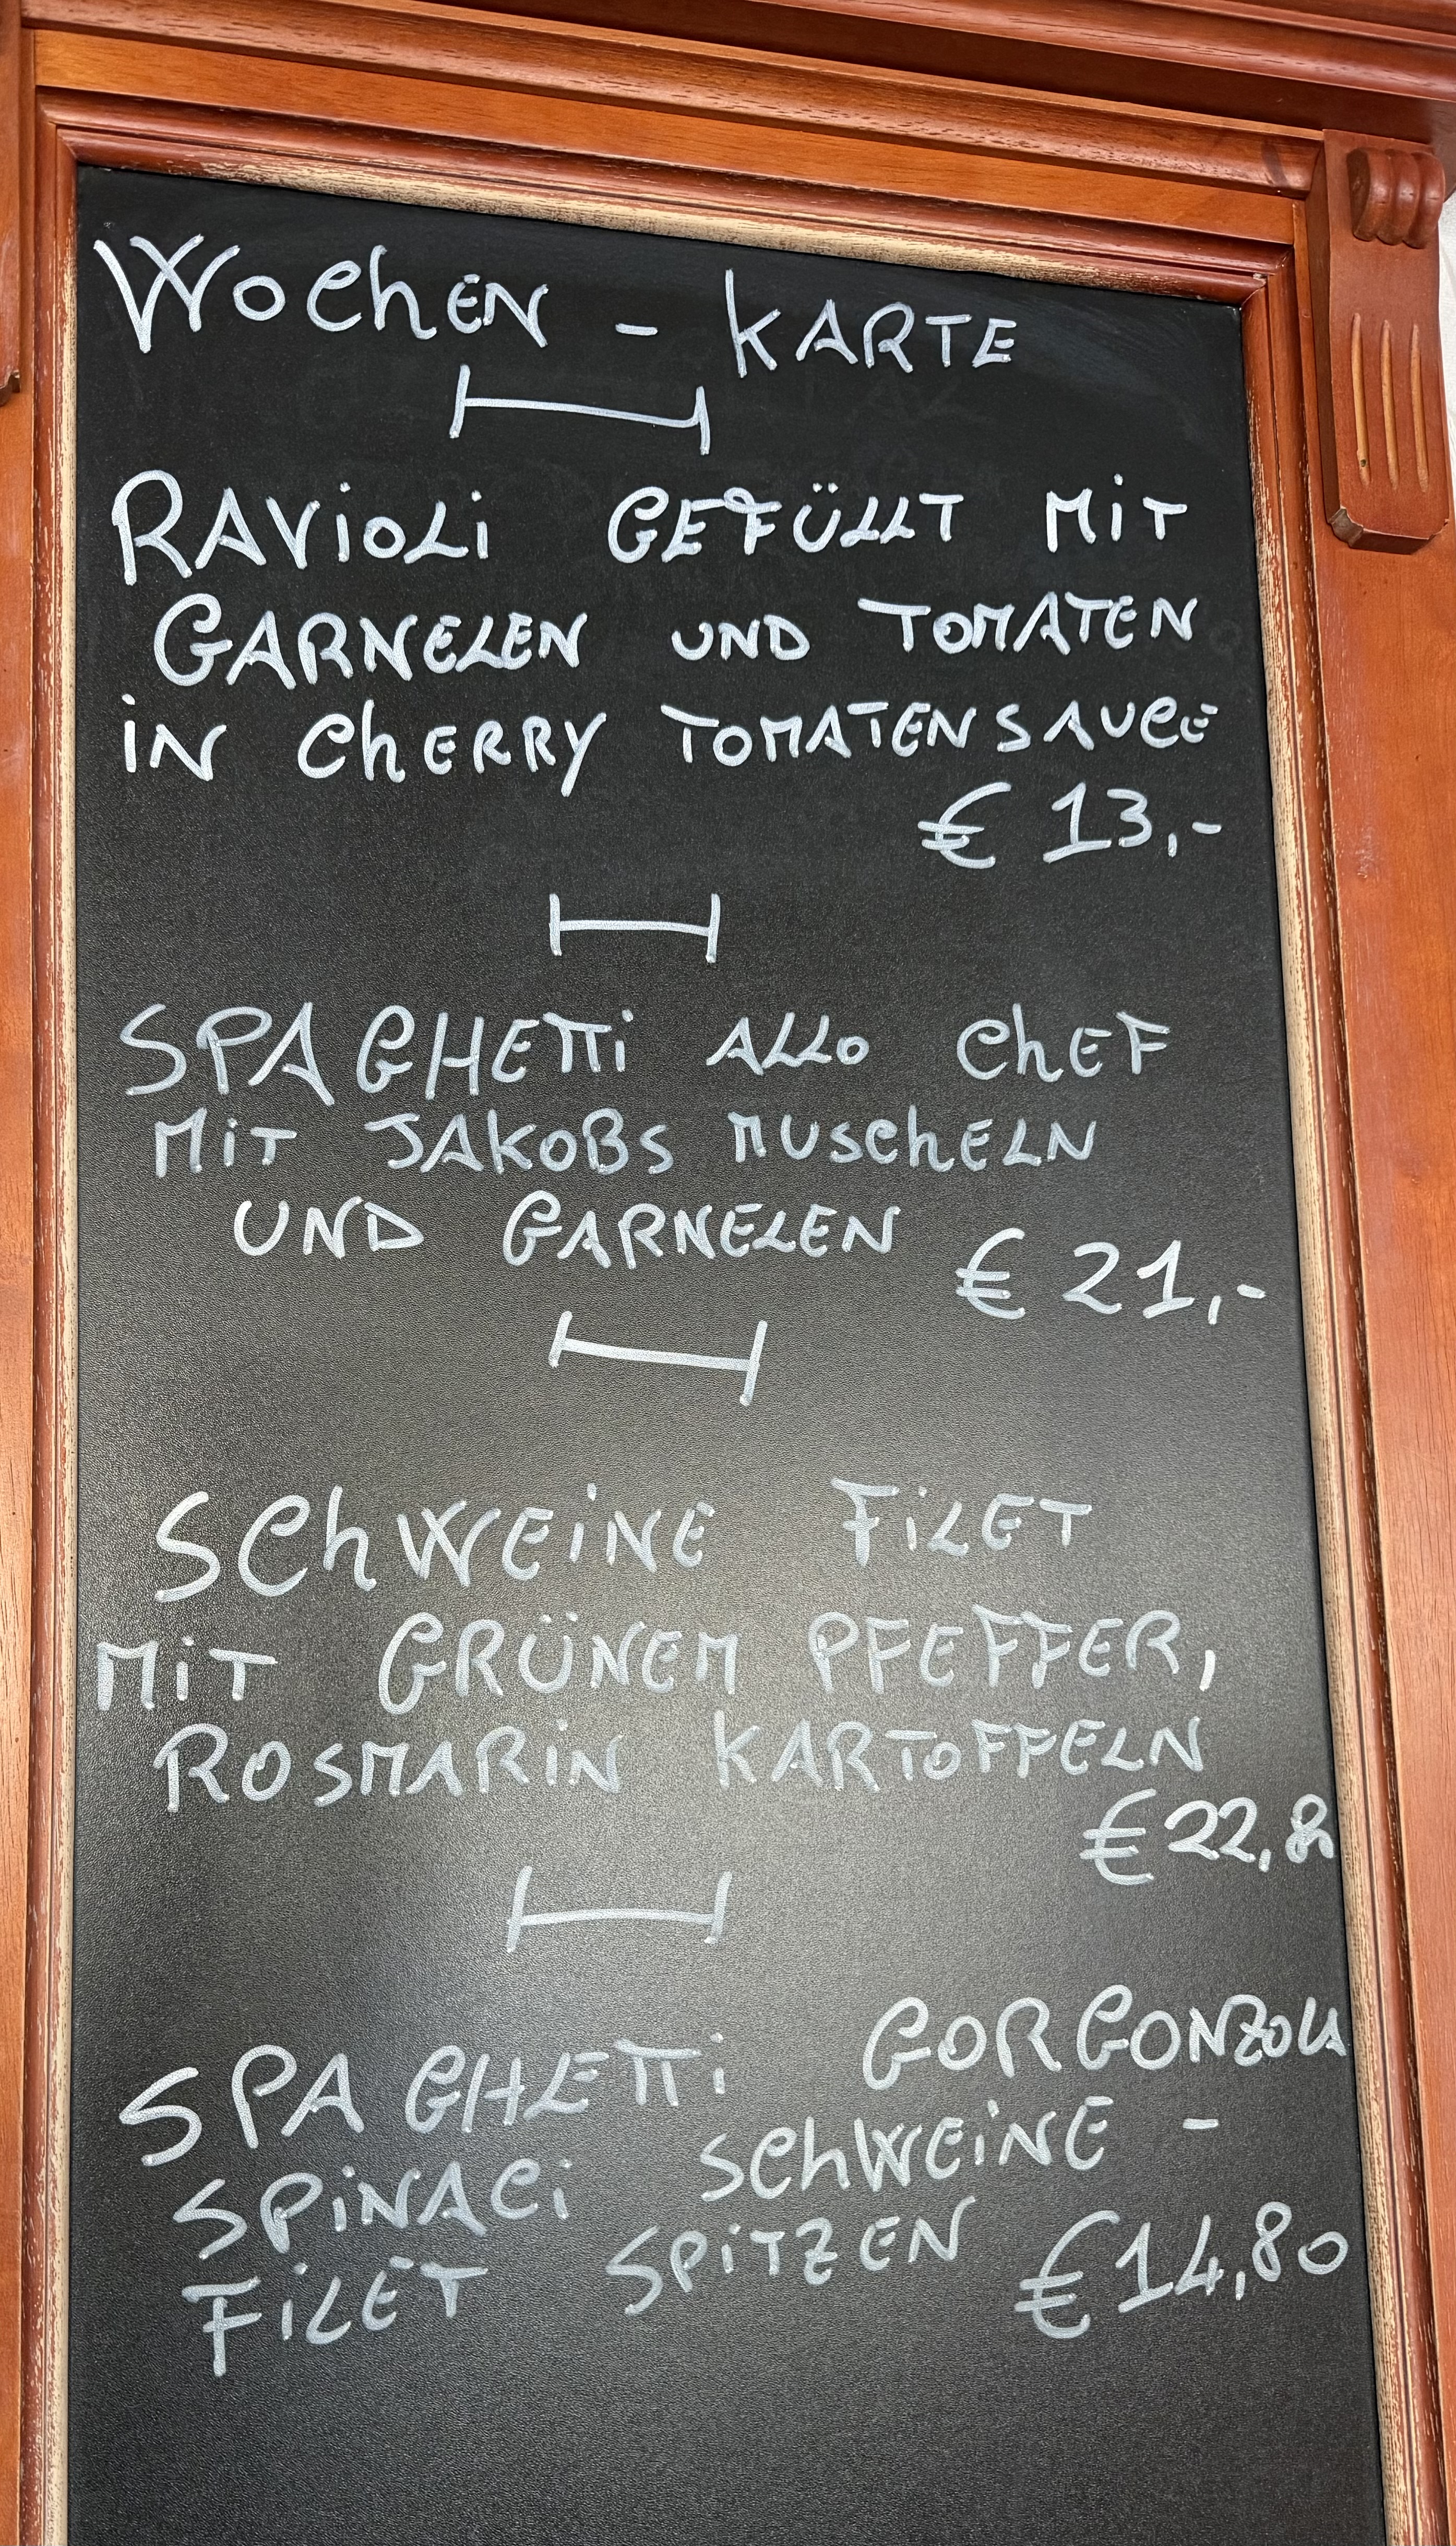 Wochen - Karte
Ravioli gefüllt mit
Garnelen und Tomaten
in Cherry Tomatensauce
€ 13,-
Spaghetti allo Chef
mit Jakobs Muscheln
und Garnelen
€ 21,-
Schweine Filet
mit grünem Pfeffer,
Rosmarin Kartoffeln
€ 22,8
Spaghetti Gorgonzola
Spinaci Schweine -
Filet Spitzen € 14,80